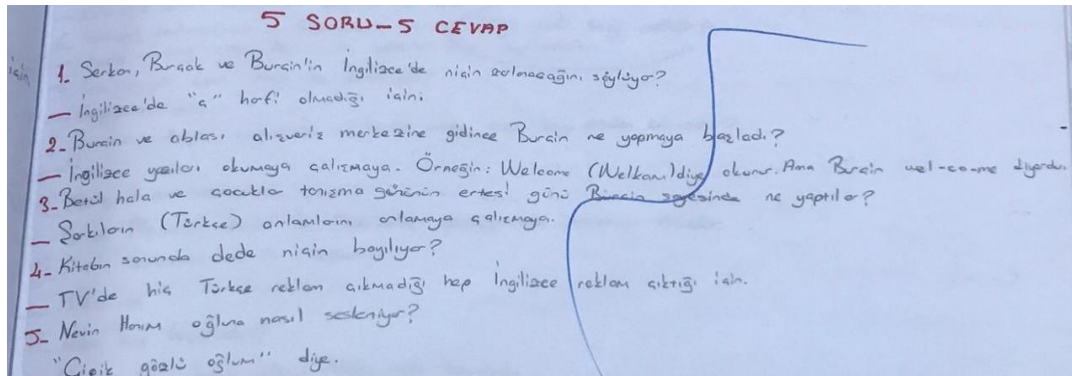 5 SORU_5 CEVAP
için
1. Serkan, Burçak ve Burçin'in İngilizce'de niçin zorlanacağını söylüyor?
— İngilizce'de "ç" harfi olmadığı için.
2_ Burçin ve ablası alışveriş merkezine gidince Burçin ne yapmaya başladı?
— İngilizce yazıları okumaya çalışmaya. Örneğin: Welcome (Welkam) diye okunur. Ama Burçin wel-co-me diyordu.
3_ Betül hala ve çocuklar tanışma gününün ertesi günü Burçin sayesinde ne yaptılar?
— Şarkıların (Türkçe) anlamlarını anlamaya çalışmaya.
4_ Kitabın sonunda dede niçin bayılıyor?
— TV'de hiç Türkçe reklam çıkmadığı hep İngilizce reklam çıktığı için.
5_ Nevin Hanım oğluna nasıl sesleniyor?
"Çipik gözlü oğlum" diye.